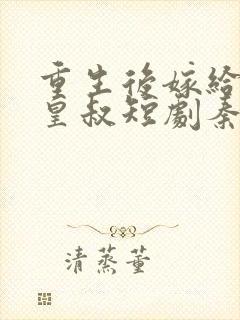 重生後嫁給
皇叔短劇秦
清蒸董